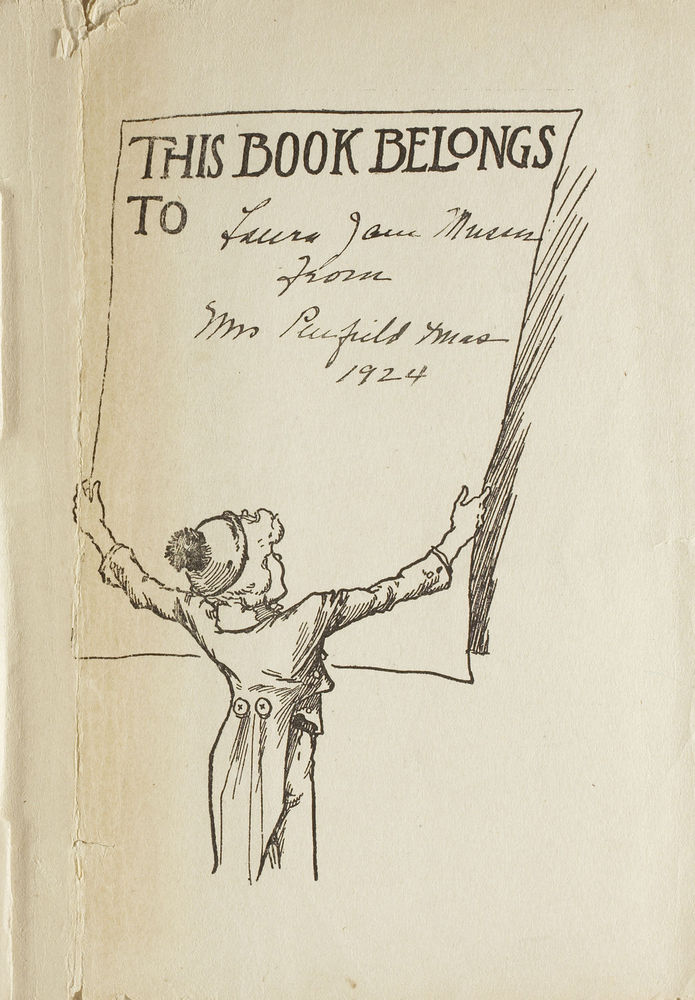 THIS BOOK BELONGS
TO
Laura Jane Musser
From
Mrs Penfield Xmas
1924